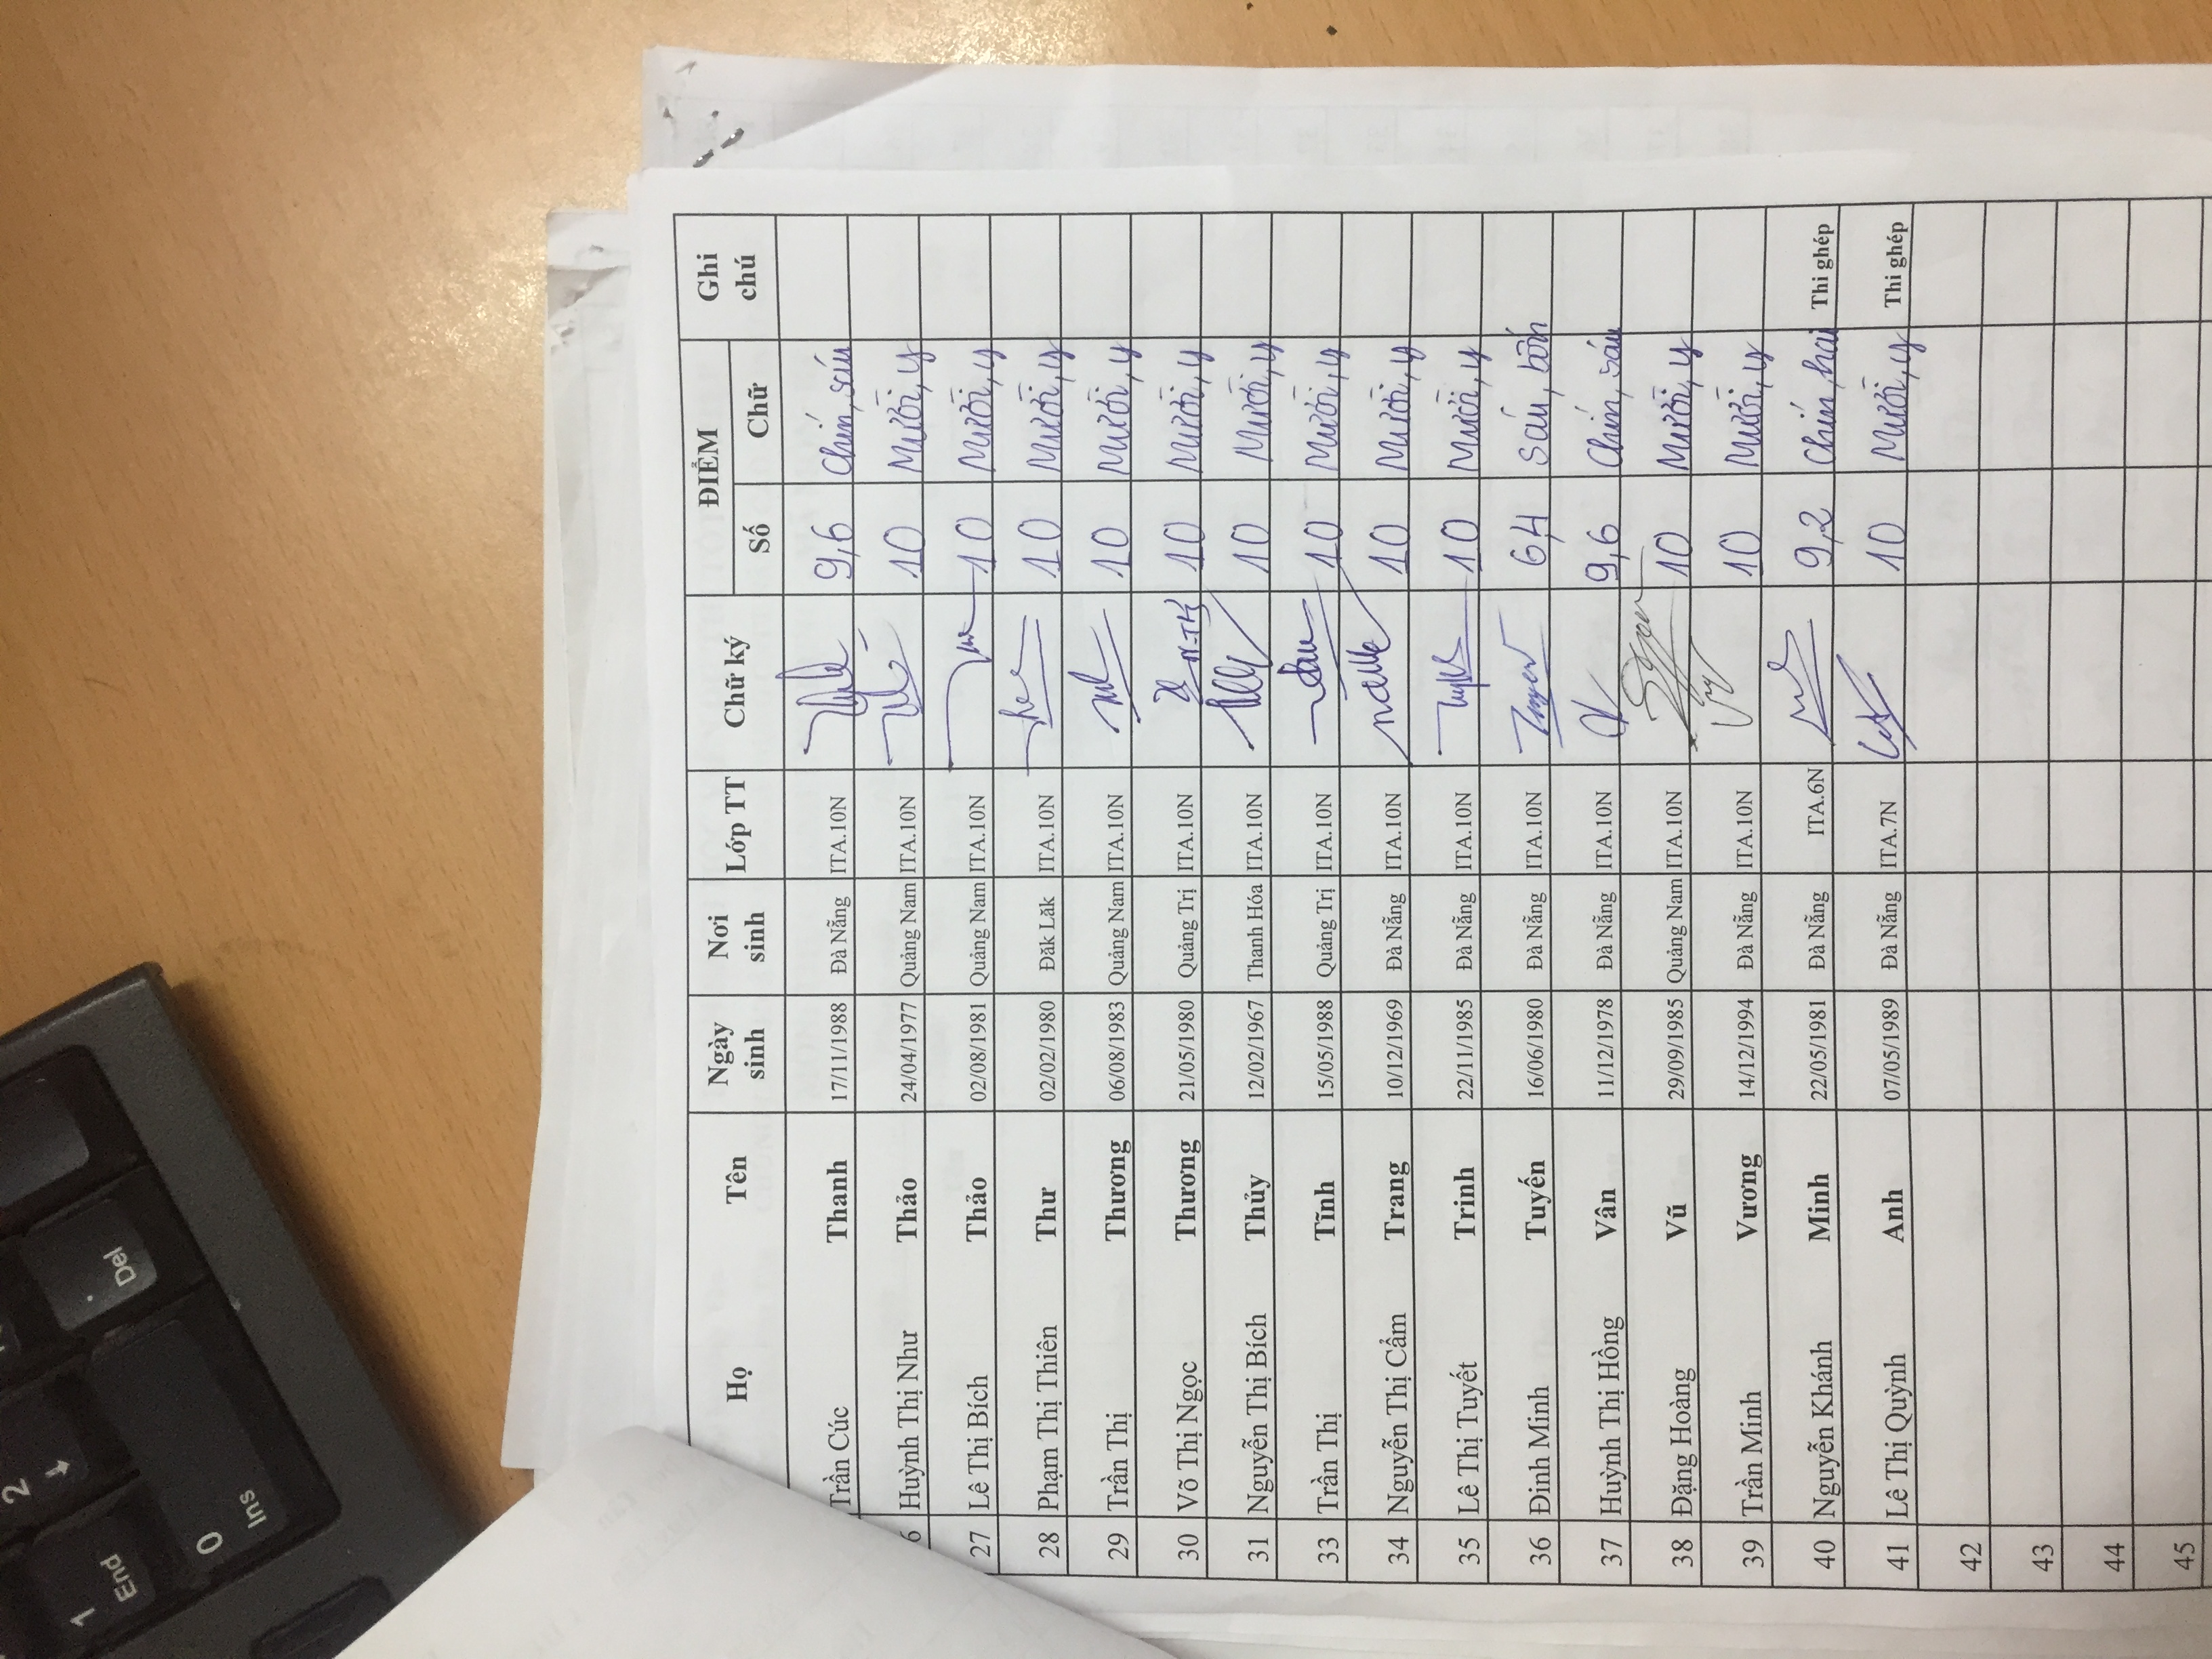 Họ Tên Ngày sinh Nơi sinh Lớp TT Chữ ký ĐIỂM Ghi chú
Số Chữ
Trần Cúc Thanh 17/11/1988 Đà Nẵng ITA.10N 9,6 Chín, sáu
6 Huỳnh Thị Như Thảo 24/04/1977 Quảng Nam ITA.10N 10 Mười, y
27 Lê Thị Bích Thảo 02/08/1981 Quảng Nam ITA.10N 10 Mười, y
28 Phạm Thị Thiên Thư 02/02/1980 Đăk Lăk ITA.10N 10 Mười, y
29 Trần Thị Thương 06/08/1983 Quảng Nam ITA.10N 10 Mười, y
30 Võ Thị Ngọc Thương 21/05/1980 Quảng Trị ITA.10N 10 Mười, y
31 Nguyễn Thị Bích Thủy 12/02/1967 Thanh Hóa ITA.10N 10 Mười, y
33 Trần Thị Tĩnh 15/05/1988 Quảng Trị ITA.10N 10 Mười, y
34 Nguyễn Thị Cẩm Trang 10/12/1969 Đà Nẵng ITA.10N 10 Mười, y
35 Lê Thị Tuyết Trinh 22/11/1985 Đà Nẵng ITA.10N 10 Mười, y
36 Đinh Minh Tuyến 16/06/1980 Đà Nẵng ITA.10N 6,4 Sáu, bốn
37 Huỳnh Thị Hồng Vân 11/12/1978 Đà Nẵng ITA.10N 9,6 Chín, sáu
38 Đặng Hoàng Vũ 29/09/1985 Quảng Nam ITA.10N 10 Mười, y
39 Trần Minh Vương 14/12/1994 Đà Nẵng ITA.10N 10 Mười, y
40 Nguyễn Khánh Minh 22/05/1981 Đà Nẵng ITA.6N 9,2 Chín, hai Thi ghép
41 Lê Thị Quỳnh Anh 07/05/1989 Đà Nẵng ITA.7N 10 Mười, y Thi ghép
42
43
44
45
Del
2
0
Ins
1
End